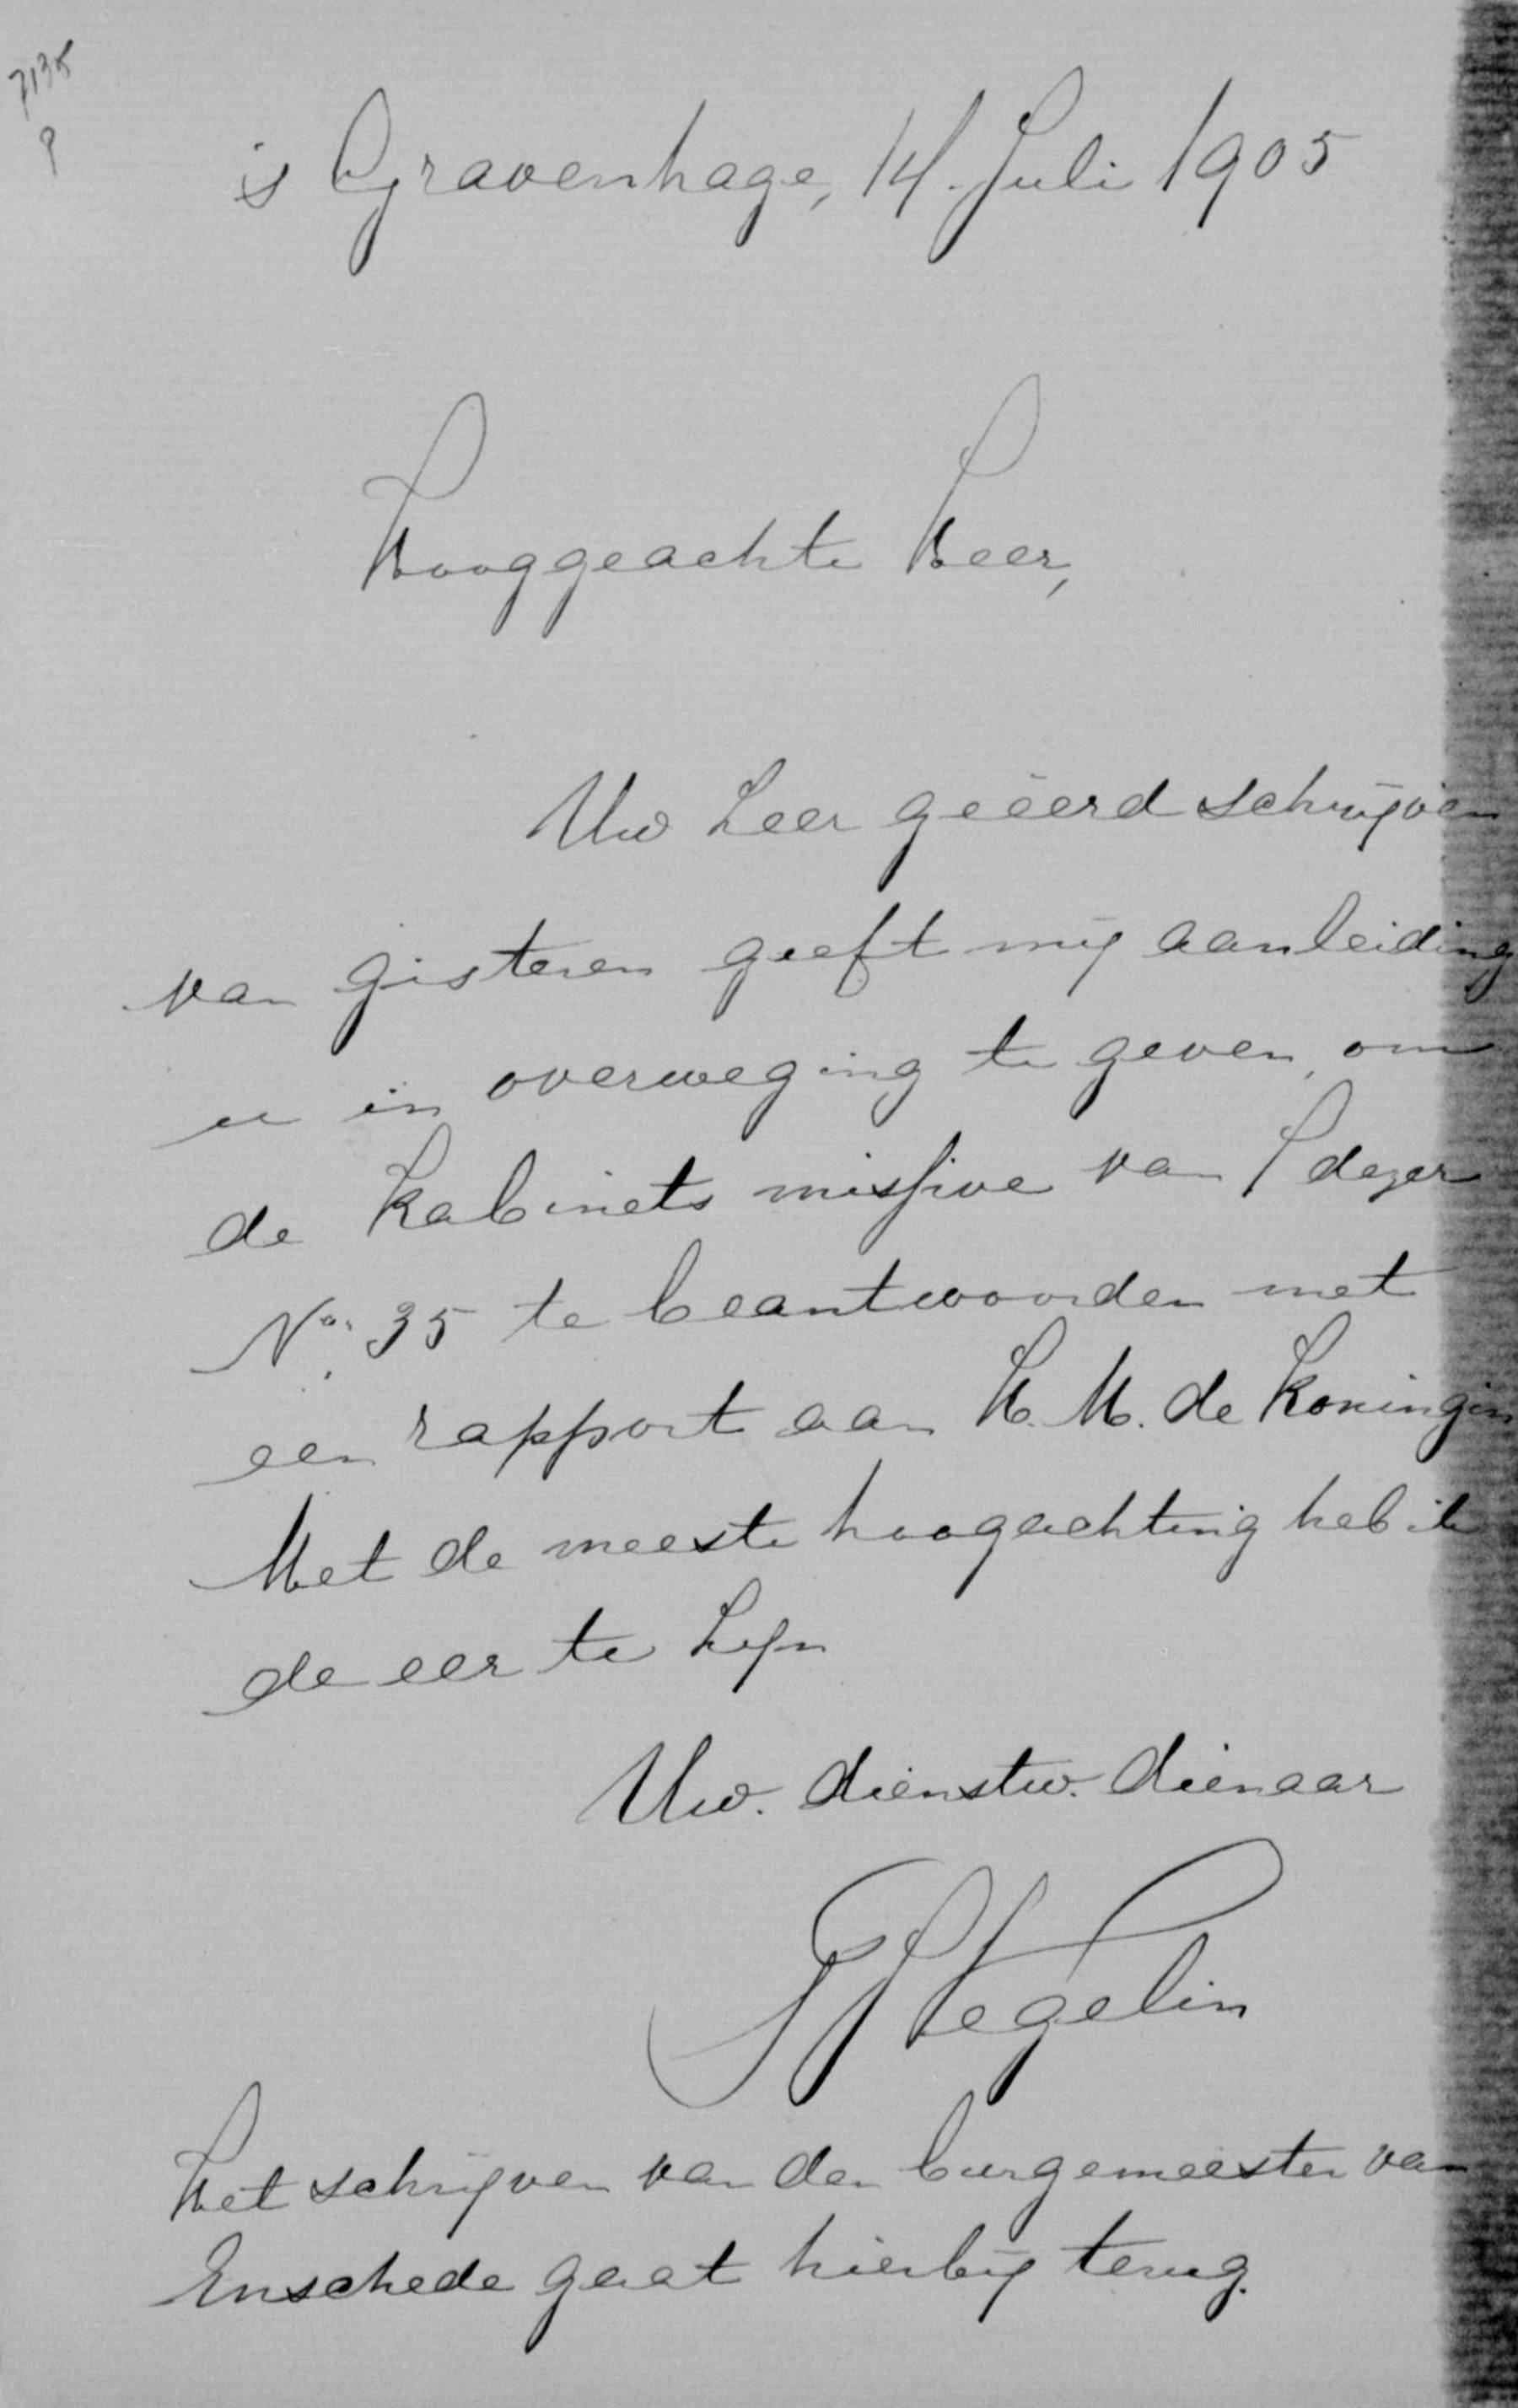 7135
's Gravenhage, 14 Juli 1905
Hooggeachte Heer,
Uw zeer geëerd schrijven
van gisteren geeft mij aanleiding
u in overweging te geven, om
de Kabinets missive van 1 dezer
No. 35 te beantwoorden met
een rapport aan H. M. de Koningin
Met de meeste hoogachting heb ik
de eer te zijn
Uw. dienstw. dienaar
Vegelin
Het schrijven van den burgemeester van
Enschede gaat hierbij terug.